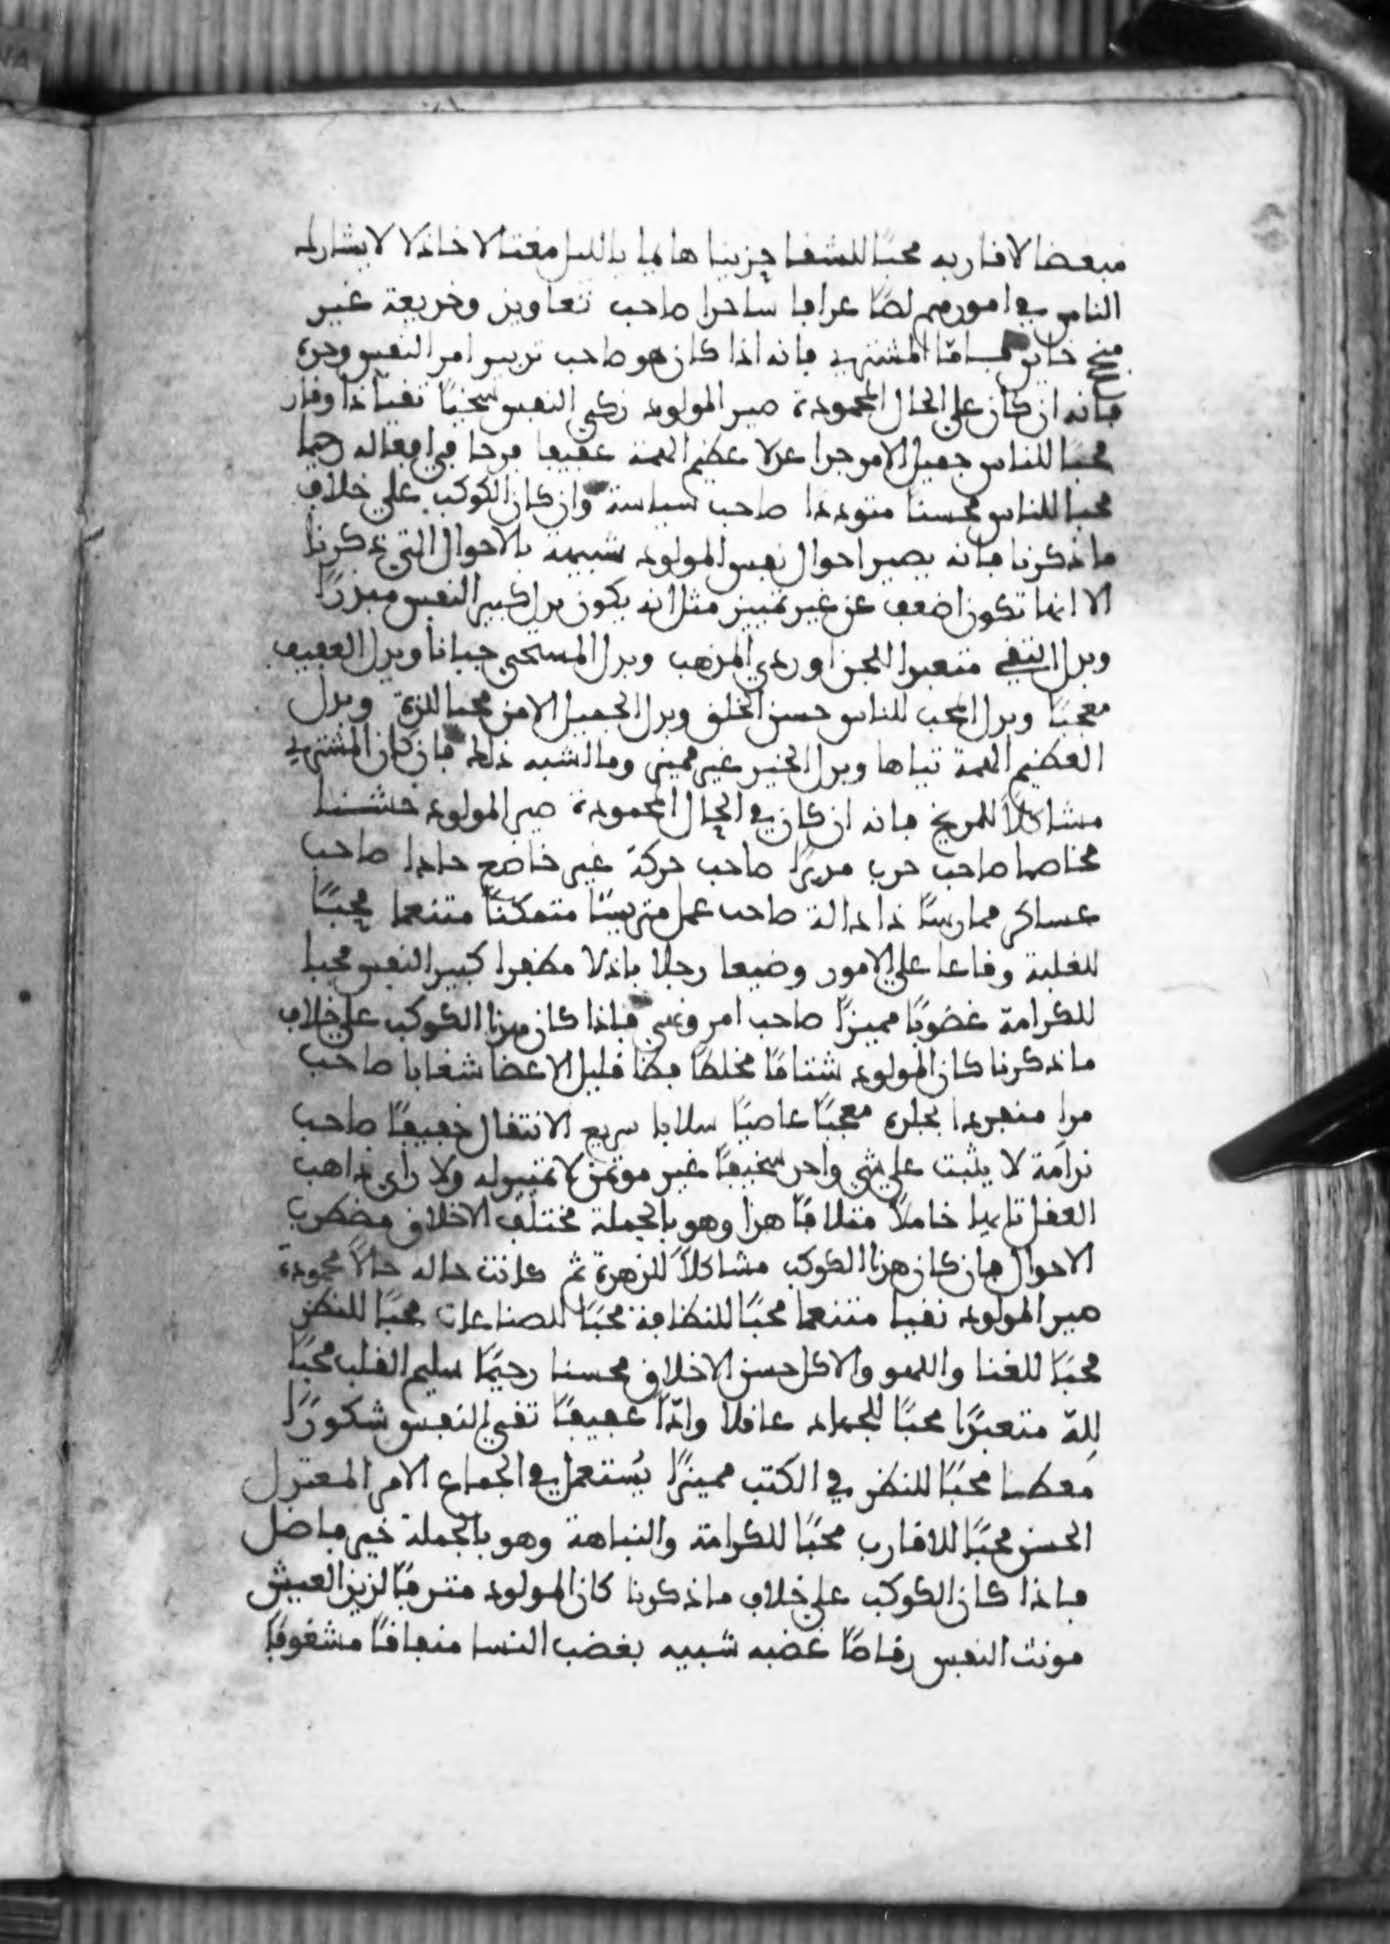 مبغضا لاقاربه محبًا للشقا حزينا هايما بالليل مغتالا خاذلا لا يشارك
الناس في امورهم لصًا عرافا ساحرا صاحب تعاويذ وخديعة غير
منجح خاين فامّا المشتري فانه اذا كان هو صاحب تدبير امر النفس وحده
فانه ان كان على الحال المحمودة صير المولود زكي النفس سخيًا نقيا ذا وقار
محبًا للناس جميل الامر جدا عدلا عظيم الهمة عفيفا فرحا في افعاله رحيما
محبا للناس محسنا متوددا صاحب سياسة وان كان الكوكب على خلاف
ما ذكرنا فانه يصير احوال نفس المولود شبيهة بالاحوال التي ذكرنا
الا انها تكون اضعف عن غير تمييز مثل انه يكون بدل كبير النفس مبذرًا
وبدل التقي متعبدا للجن او ردي المذهب وبدل المستحي جبانا وبدل العفيف
معجبًا وبدل المحب للناس حسن الخلق وبدل الجميل الامر محبا للذة وبدل
العظيم الهمة تياها وبدل الخير غير مميز وما اشبه ذلك فان كان المشتري
مشاكلًا للمريخ فانه ان كان في الحال المحمودة صير المولود خشنا
مخاصما صاحب حرب مدبرًا صاحب حركة غير خاضع حادا صاحب
عساكر ممارسًا ذا دالة صاحب عمل متمكنًا متنعما محبًا
للغلبة وقاعا على الامور وضيعا رجلا باذلا مظفرا كبير النفس محبا
للكرامة غضوبًا مميزًا صاحب امر ونهي فاذا كان هذا الكوكب على خلاف
ما ذكرنا كان المولود شتامًا مخلطًا فظا قليل الاغضا شغابا صاحب
مرا منفردا بجلده معجبًا عاصيًا سلابا سريع الانتقال خفيفًا صاحب
ندامة لا يثبت على شي واحد سخيفًا غير موتمن لا تمييز له ولا راي ذاهب
العقل تايها خاملًا متلافًا هذا وهو بالجملة مختلف الاخلاق مضطرب
الاحوال فان كان هذا الكوكب مشاكلًا للزهرة ثم كانت حاله حالًا محمودة
صير المولود نقيا متنعما محبًا للنظافة محبًا للصناعات محبًا للنظر
محبًا للغنا واللهو والاكل حسن الاخلاق محسنا رحيمًا سليم القلب محبًا
للّه متعبدًا محبًا للجهاد عاقلا وادًّا عفيفًا تقي النفس شكورًا
معطيا محبًا للنظر في الكتب مميزًا يُستعمل في الجماع الامر المعتدل
الحسن محبًا للاقارب محبًا للكرامة والنباهة وهو بالجملة خير فاضل
فاذا كان الكوكب على خلاف ما ذكرنا كان المولود مترفًا لذيذ العيش
مونث النفس رقاصًا غضبه شبيه بغضب النسا منفاقًا مشغوفًا